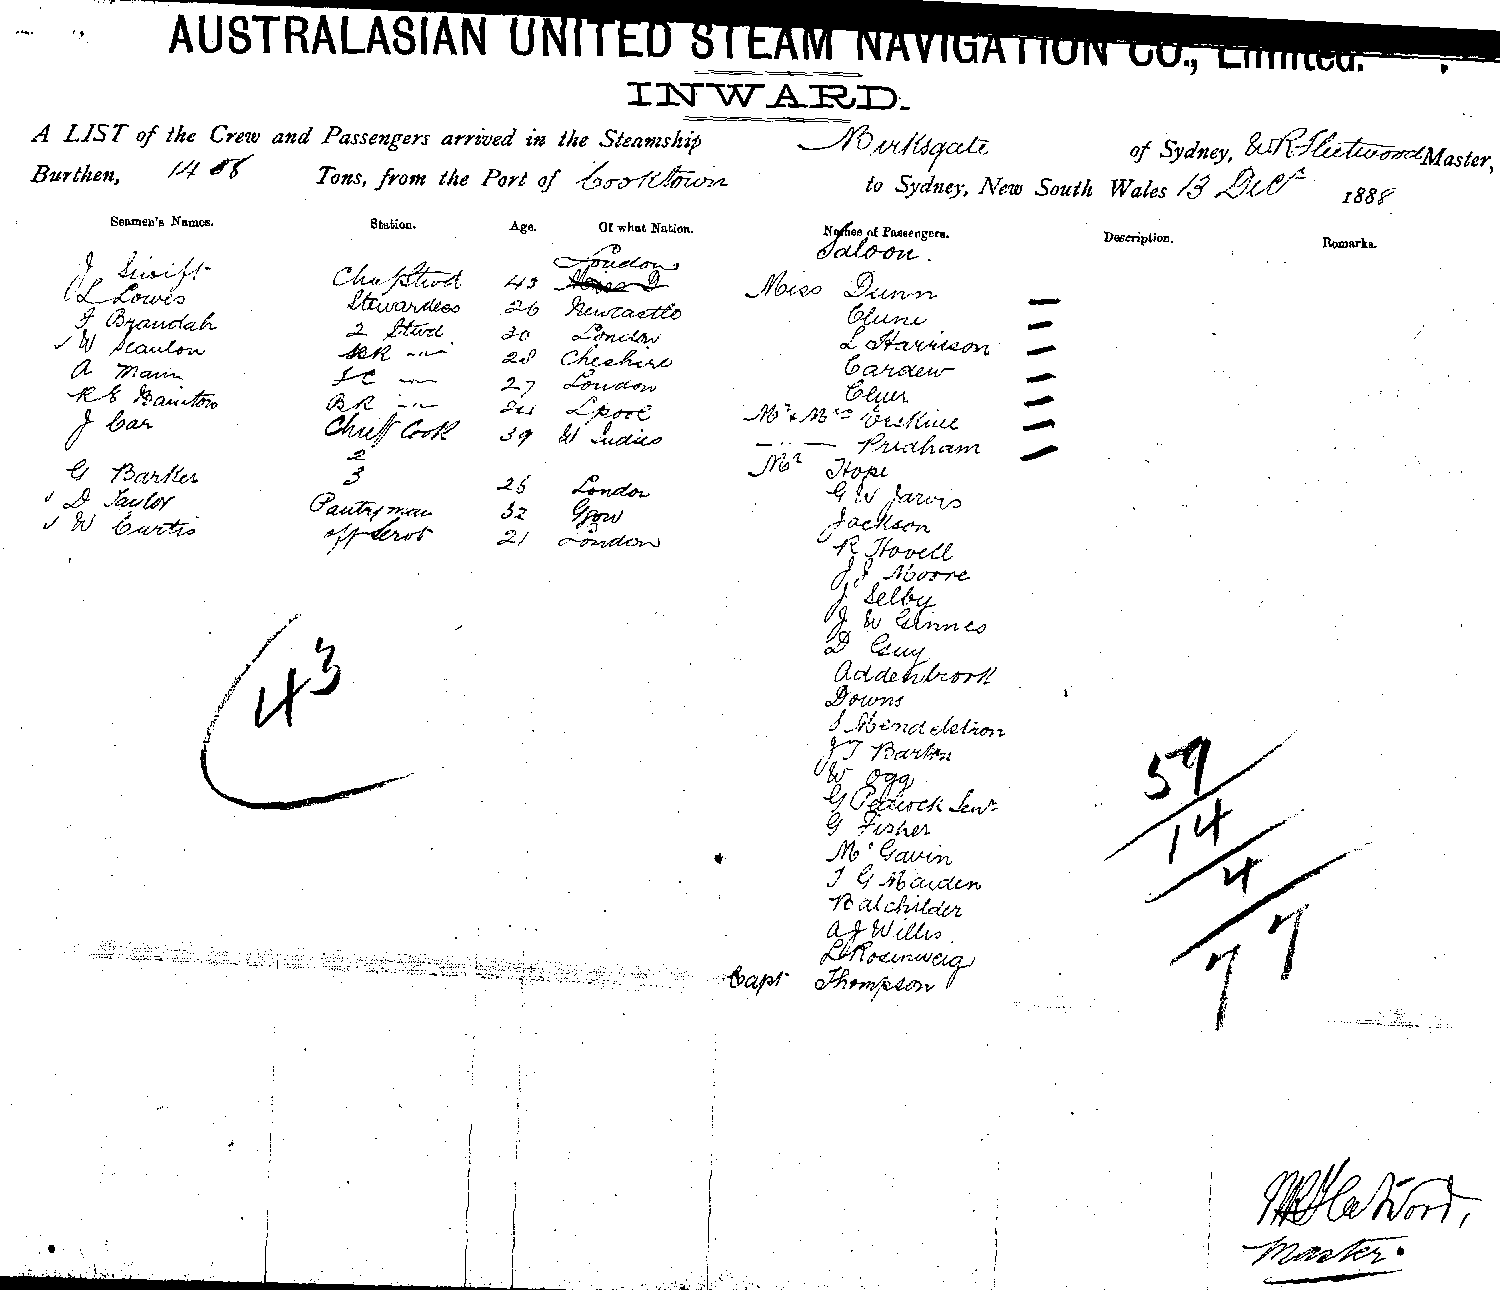 AUSTRALASIAN UNITED STEAM NAVIGATION CO., Limited.
INWARD.
A LIST of the Crew and Passengers arrived in the Steamship Birksgate of Sydney, W R Fleetwood Master,
Burthen, 14 08 Tons, from the Port of Cooktown to Sydney, New South Wales 13 Decr 1888
Seamen's Names. Station. Age. Of what Nation. Names of Passengers. Description. Remarks.
Saloon.
J Swift Chf Stwd 43 London
L Lowis Stewardess 26 Newcastle Miss Dunn
F Brandah 2 Stwd 30 London Clune
W Scanlon 28 Cheshire L Harrison
A Mann 27 London Cardew
R E Bainton BR 24 Lpool
J Car Chief Cook 39 W Indies Mr & Mrs Erskine
2 Pridham
G Barker 3 25 London Mr Hope
D Taylor Pantryman 32 Ggow G W Jarvis
W Curtis 21 London Jackson
R Hovell
J S Moore
J Selby
J W Ginnes
D Guy
Addenbrook
Downs
S Mendelstron
J T Barton
W Ogg
G Pedcock Senr
G Fisher
Mc Gavin
T G Maiden
Balchilder
A J Willis
L Rosenweig
Capt Thompson
43
59
14
4
77
W R Fleetwood,
Master.